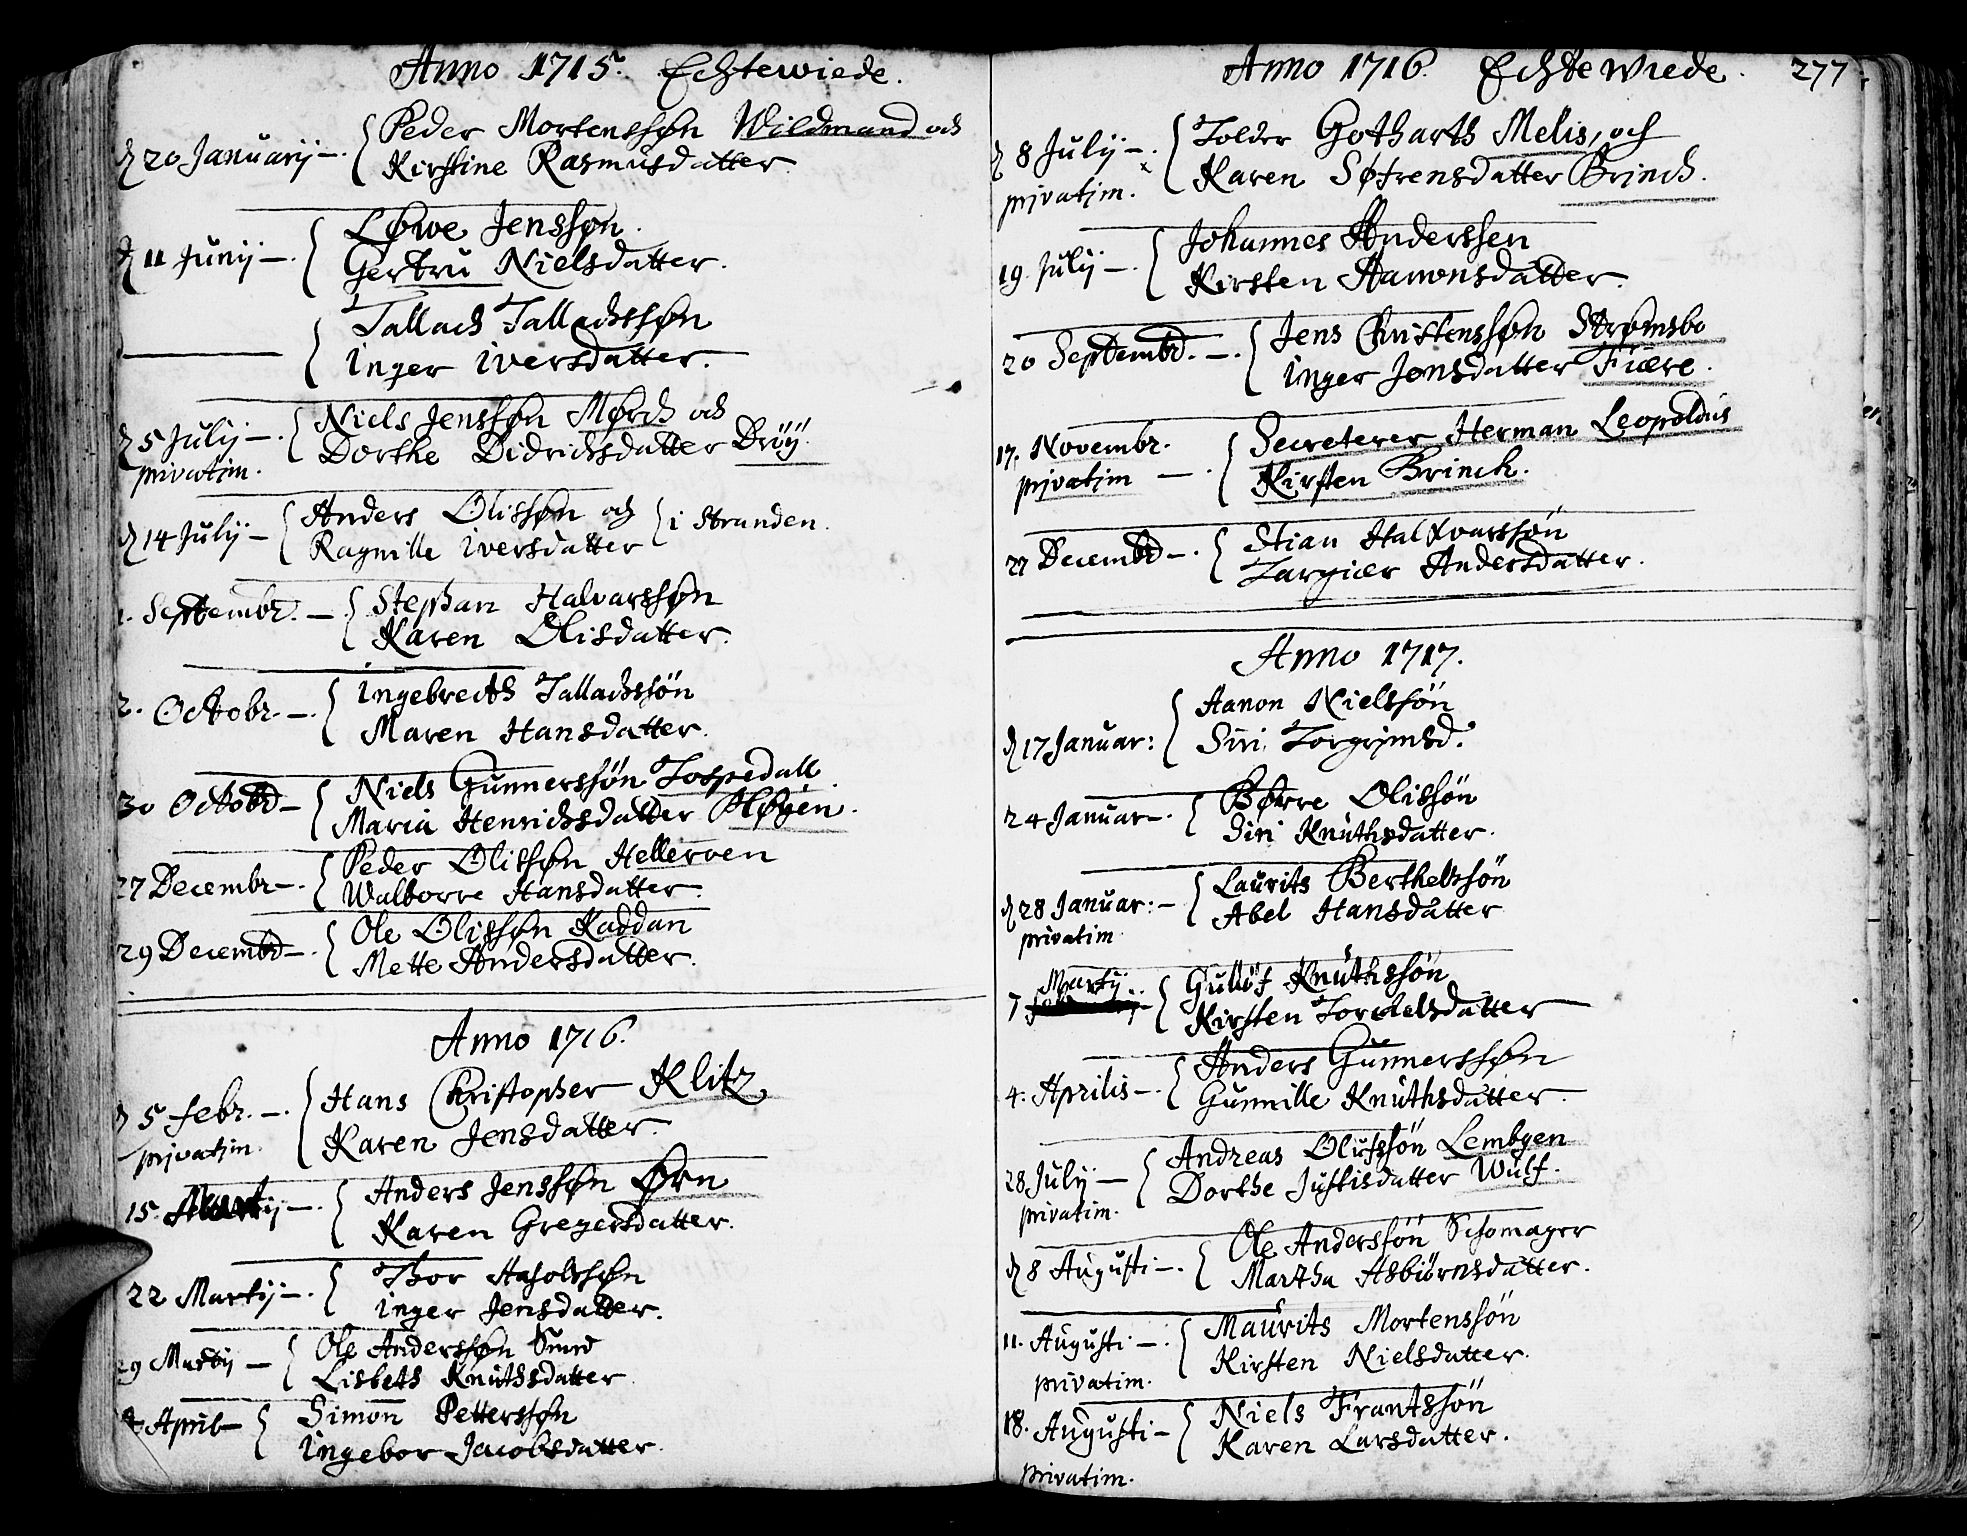 Anno 1715. Echtewiede.
20 Januarij Peder Mortenssøn Wildmand och
Kirstine Rasmusdatter.
11 Junij Løwe Jenssøn.
Gertru Nielsdatter.
Tallach Tallachssøn
Inger Iversdatter.
5 Julij Niels Jenssøn Mørch och
privatim. Dorthe Didrichsdatter Drøÿ.
14 Julij Anders Olissøn och
Ragnille Iversdatter i Stranden.
Septembr. Stephan Halvarssøn
Karen Olisdatter.
2. Octobr. Ingebrecth Tallachssön
Maren Hansdatter.
30 Octobr Niels Gunnerssön
Maria Henrichsdatter
27 Decembr. Peder Olissøn Hellerven
Walborre Hansdatter.
29 Decembr Ole Olissøn Kaddan
Mette Andersdatter.
Anno 1716.
5 febr. Hans Christopher Klitz
privatim. Karen Jensdatter.
15. Martij Anders Jenssøn Ørn
Karen Gregersdatter.
22 Martij Thor
Inger Jensdatter.
29 Martij Ole Anderssøn Sund
Lisbeth Knuthsdatter
April Simon Petterssøn
Ingebor Jacobsdatter.
Anno 1716. Echtewiede. 277
8 Julij Tolder Gotharth Melis, och
privatim. Karen Søfrensdatter Brinch.
19. Julij Johannes Anderssen
Kirsten Aanonsdatter.
20 Septembr. Jens Christenssøn Strømsbo
Inger Jensdatter Fiære.
17. Novembr. Secreterer Herman Leopoldus
privatim Kirsten Brinch.
27 Decembr Stian Halfvarssön
Targiær Andersdatter.
Anno 1717.
17 Januar: Aanon Nielssön
Siri Torgrimsd.
24 Januar Børre Olissön
Siri Knuthsdatter.
28 Januar: Laurits Berthelssön
privatim Abel Hansdatter
7 Martij Gullöf Knuthssön
Kirsten Torkelsdatter
4. Aprilis Anders Gunnerssøn
Gunnille Knuthsdatter.
28 Julij Andreas Olufssön Lembgen
privatim. Dorthe Justisdatter Wulf.
8 Augusti Ole Anderssön Schomager
Martha Asbiörnsdatter.
11. Augusti Maurits Mortenssön
privatim. Kirsten Nielsdatter.
18. Augusti Niels Frantssön
privatim. Karen Larsdatter.